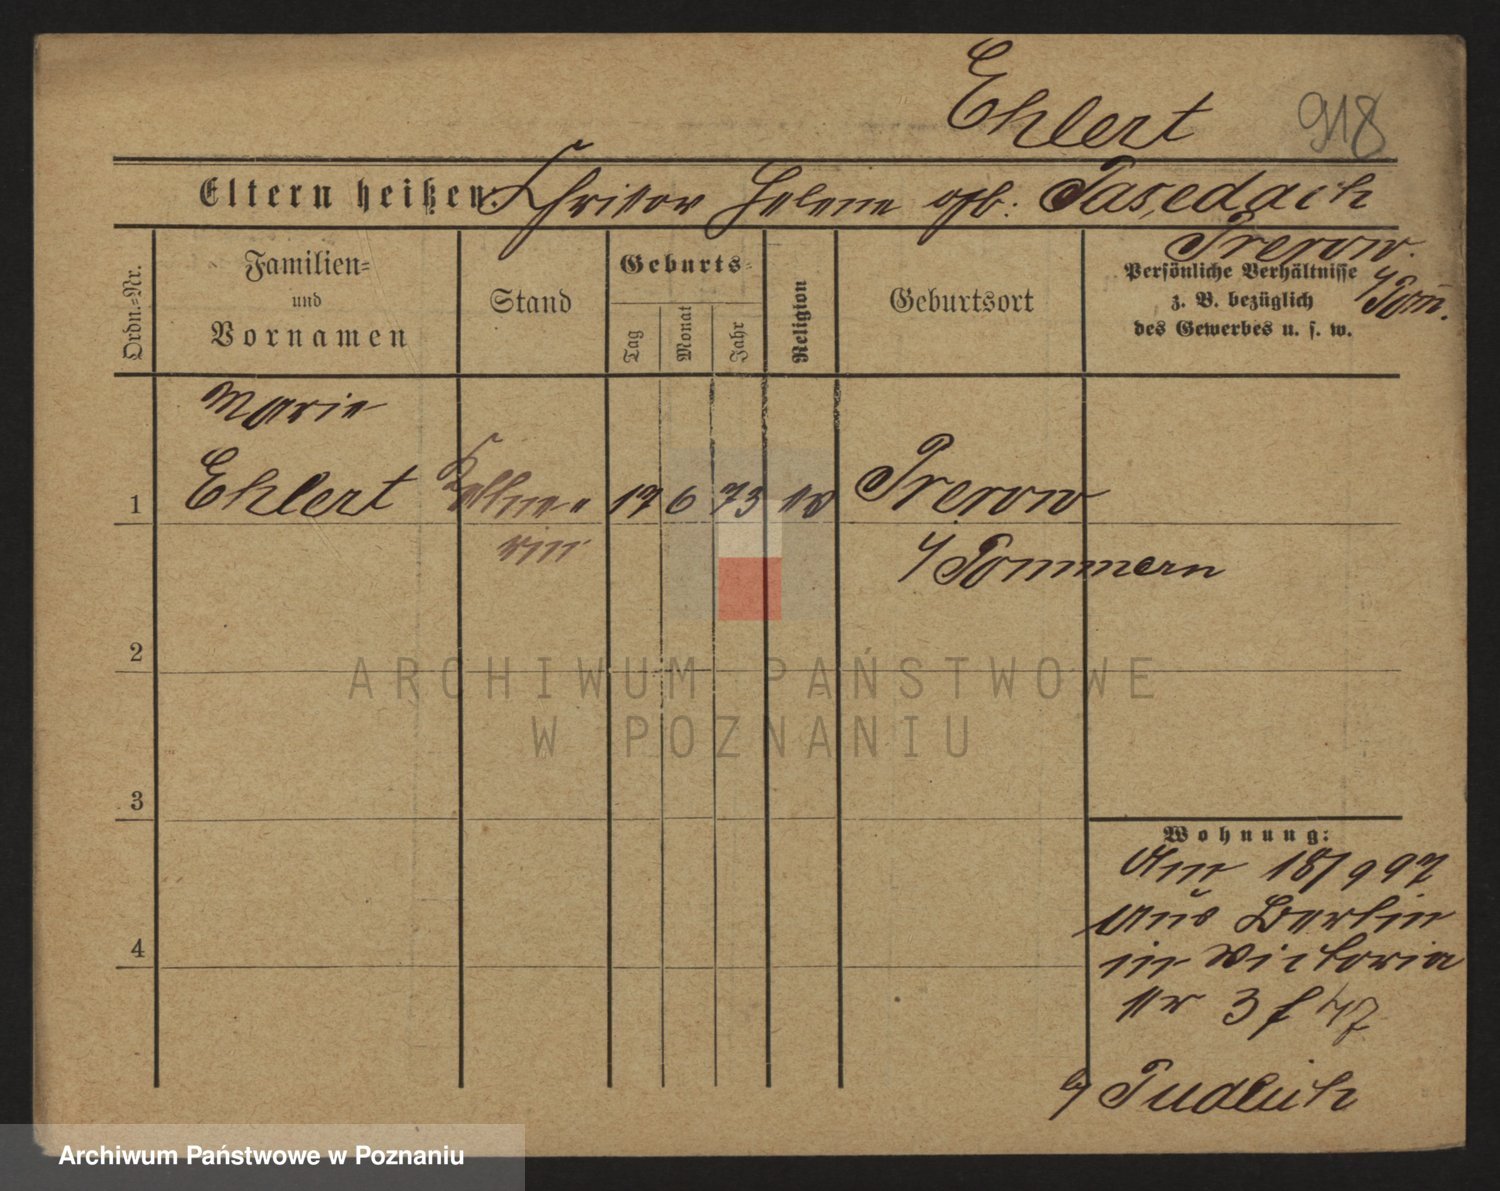 Ehlert 918
Eltern heißen: Christor Helene geb: Pasedach
Prerow
i/Pom.
Ordn.=Nr.
Familien=
und
Vornamen
Stand
Geburts=
Tag
Monat
Jahr
Religion
Geburtsort
Persönliche Verhältnisse
z. B. bezüglich
des Gewerbes u. s. w.
Marie
1 Ehlert Kellne= 17 6 73 ev Prerow
rin i/Pommern
2
3
4
Wohnung:
Am 18/9 97
aus Berlin
in Victoria
Nr 3
b/
ARCHIWUM PAŃSTWOWE
W POZNANIU
Archiwum Państwowe w Poznaniu